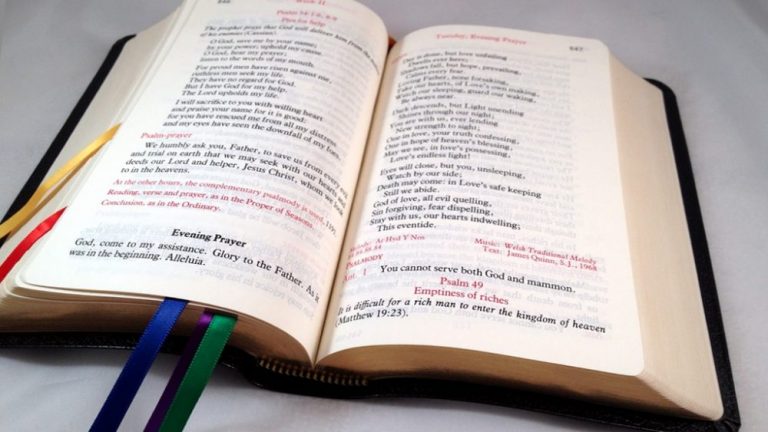 Week II
Psalm 54:1-6, 8-9
Plea for help
The prophet prays that God will deliver him from the
of his enemies (Cassian).
O God, save me by your name;
by your power, uphold my cause.
O God, hear my prayer;
listen to the words of my mouth.
For proud men have risen against me,
ruthless men seek my life.
They have no regard for God.
But I have God for my help.
The Lord upholds my life.
I will sacrifice to you with willing heart
and praise your name for it is good:
for you have rescued me from all my distress
and my eyes have seen the downfall of my foes.
Psalm-prayer
We humbly ask you, Father, to save us from every
and trial on earth that we may seek with our hearts and
deeds our Lord and helper, Jesus Christ, whom we look
to in the heavens.
At the other hours, the complementary psalmody is used, 1191.
Reading, verse and prayer, as in the Proper of Seasons.
Conclusion, as in the Ordinary.
Evening Prayer
God, come to my assistance. Glory to the Father. As it
was in the beginning. Alleluia.
Tuesday, Evening Prayer
847
Day is done, but love unfailing
Dwells ever here;
Shadows fall, but hope, prevailing,
Calms every fear.
Loving Father, none forsaking,
Take our hearts, of Love's own making,
Watch our sleeping, guard our waking,
Be always near.
Dark descends, but Light unending
Shines through our night;
You are with us, ever lending
New strength to sight;
One in love, your truth confessing,
One in hope of heaven's blessing,
May we see, in love's possessing,
Love's endless light!
Eyes will close, but you, unsleeping,
Watch by our side;
Death may come: in Love's safe keeping
Still we abide.
God of love, all evil quelling,
Sin forgiving, fear dispelling,
Stay with us, our hearts indwelling;
This eventide.
Melody: Ar Hyd Y Nos Music: Welsh Traditional Melody
84.84.88.84 Text: James Quinn, S.J., 1968
PSALMODY
Ant. 1 You cannot serve both God and mammon.
Psalm 49
Emptiness of riches
It is difficult for a rich man to enter the kingdom of heaven
(Matthew 19:23).